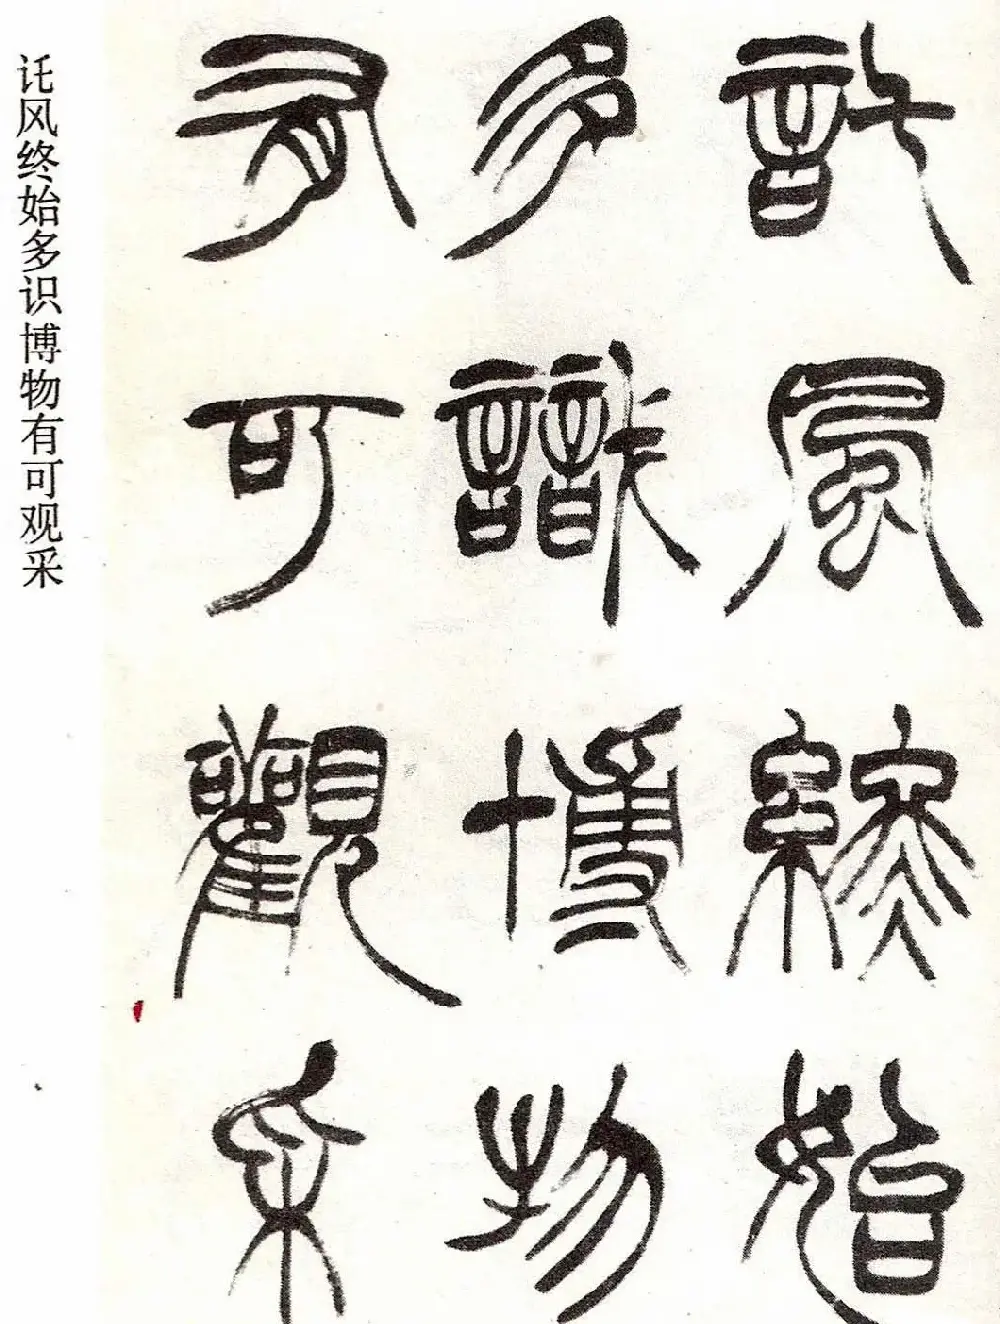 託風終始
多識博物
有可觀采
讬风终始多识博物有可观采